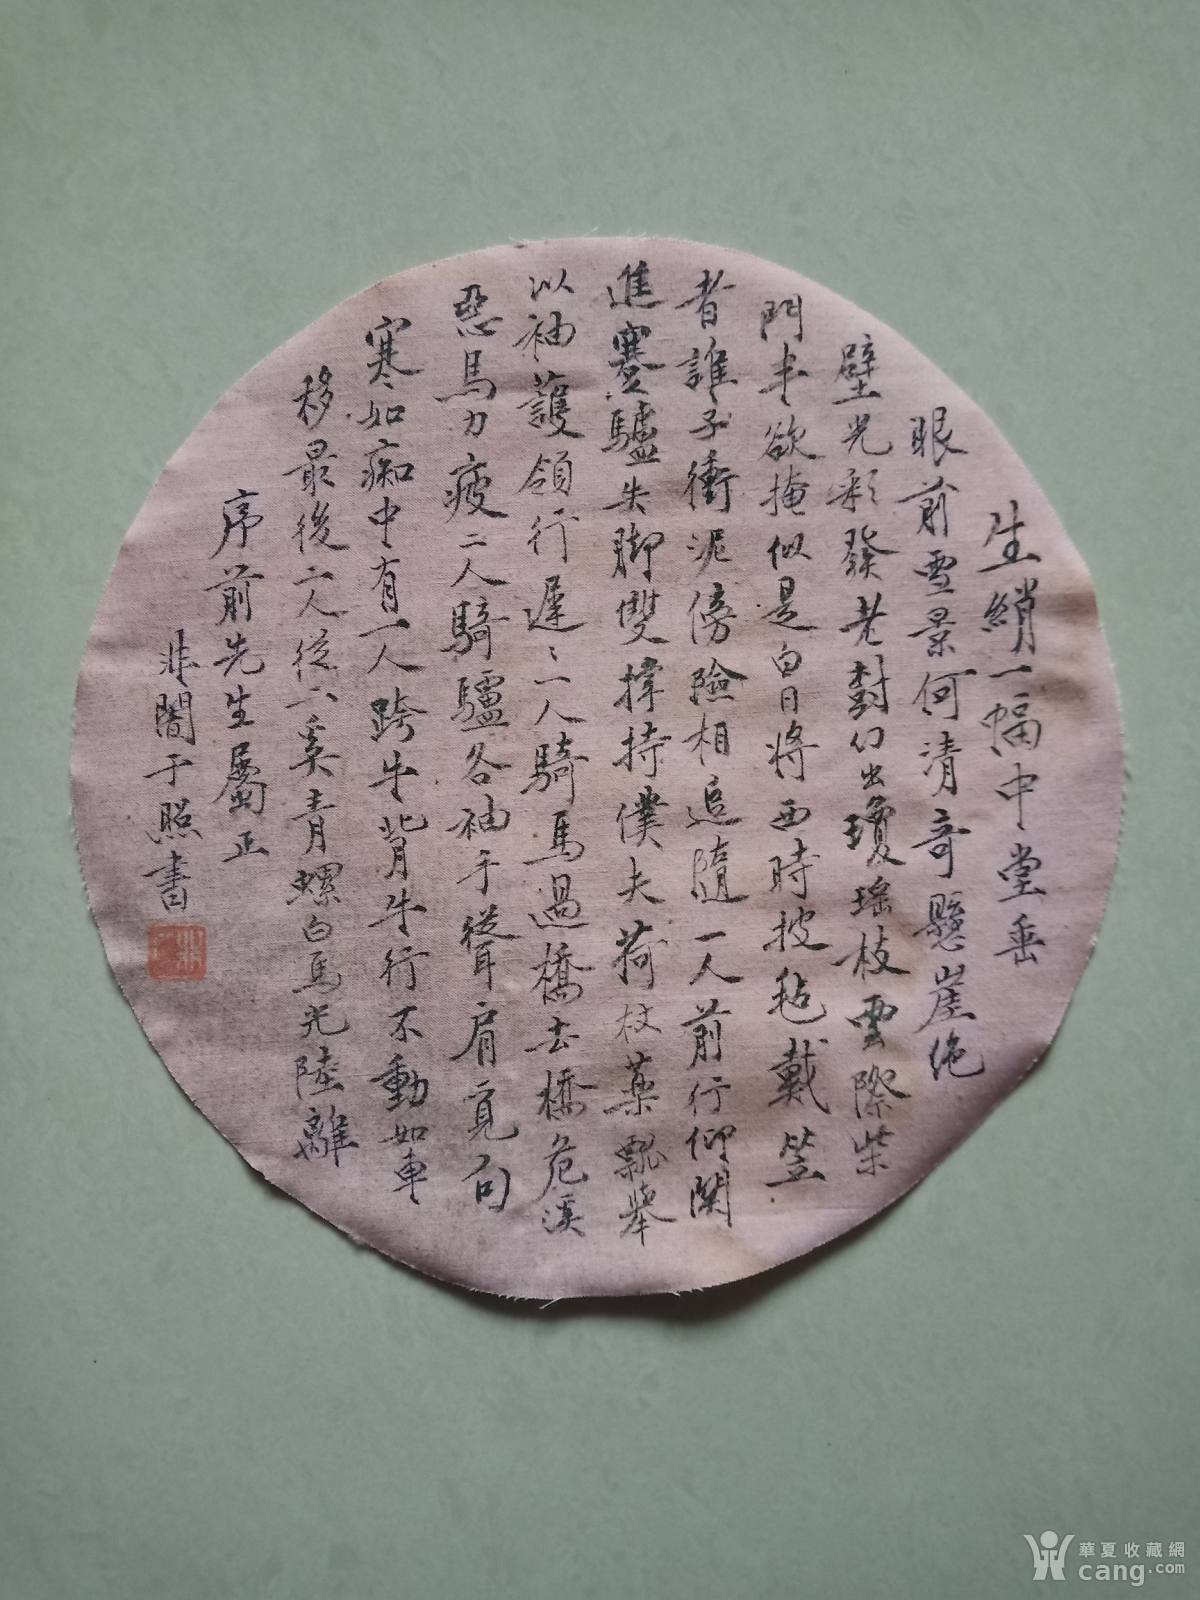 生綃一幅中堂垂
眼前雪景何清奇懸崖絶
壁光彩發老樹幻出瓊瑤枝雲際柴
門半欲掩似是白日將西時披毡戴笠
者誰子衝泥傍險相追隨一人前行仰関
進蹇驢失脚雙撑持僕夫荷杖藥瓢舉
以袖護領行遲〻一人騎馬過橋去橋危溪
惡馬力疲二人騎驢各袖手聳肩覓句
寒如痴中有一人跨牛背牛行不動如車
移最後六人從六奚青螺白馬光陸離
序前先生屬正
非闇于照書
非
華夏收藏網
cang.com